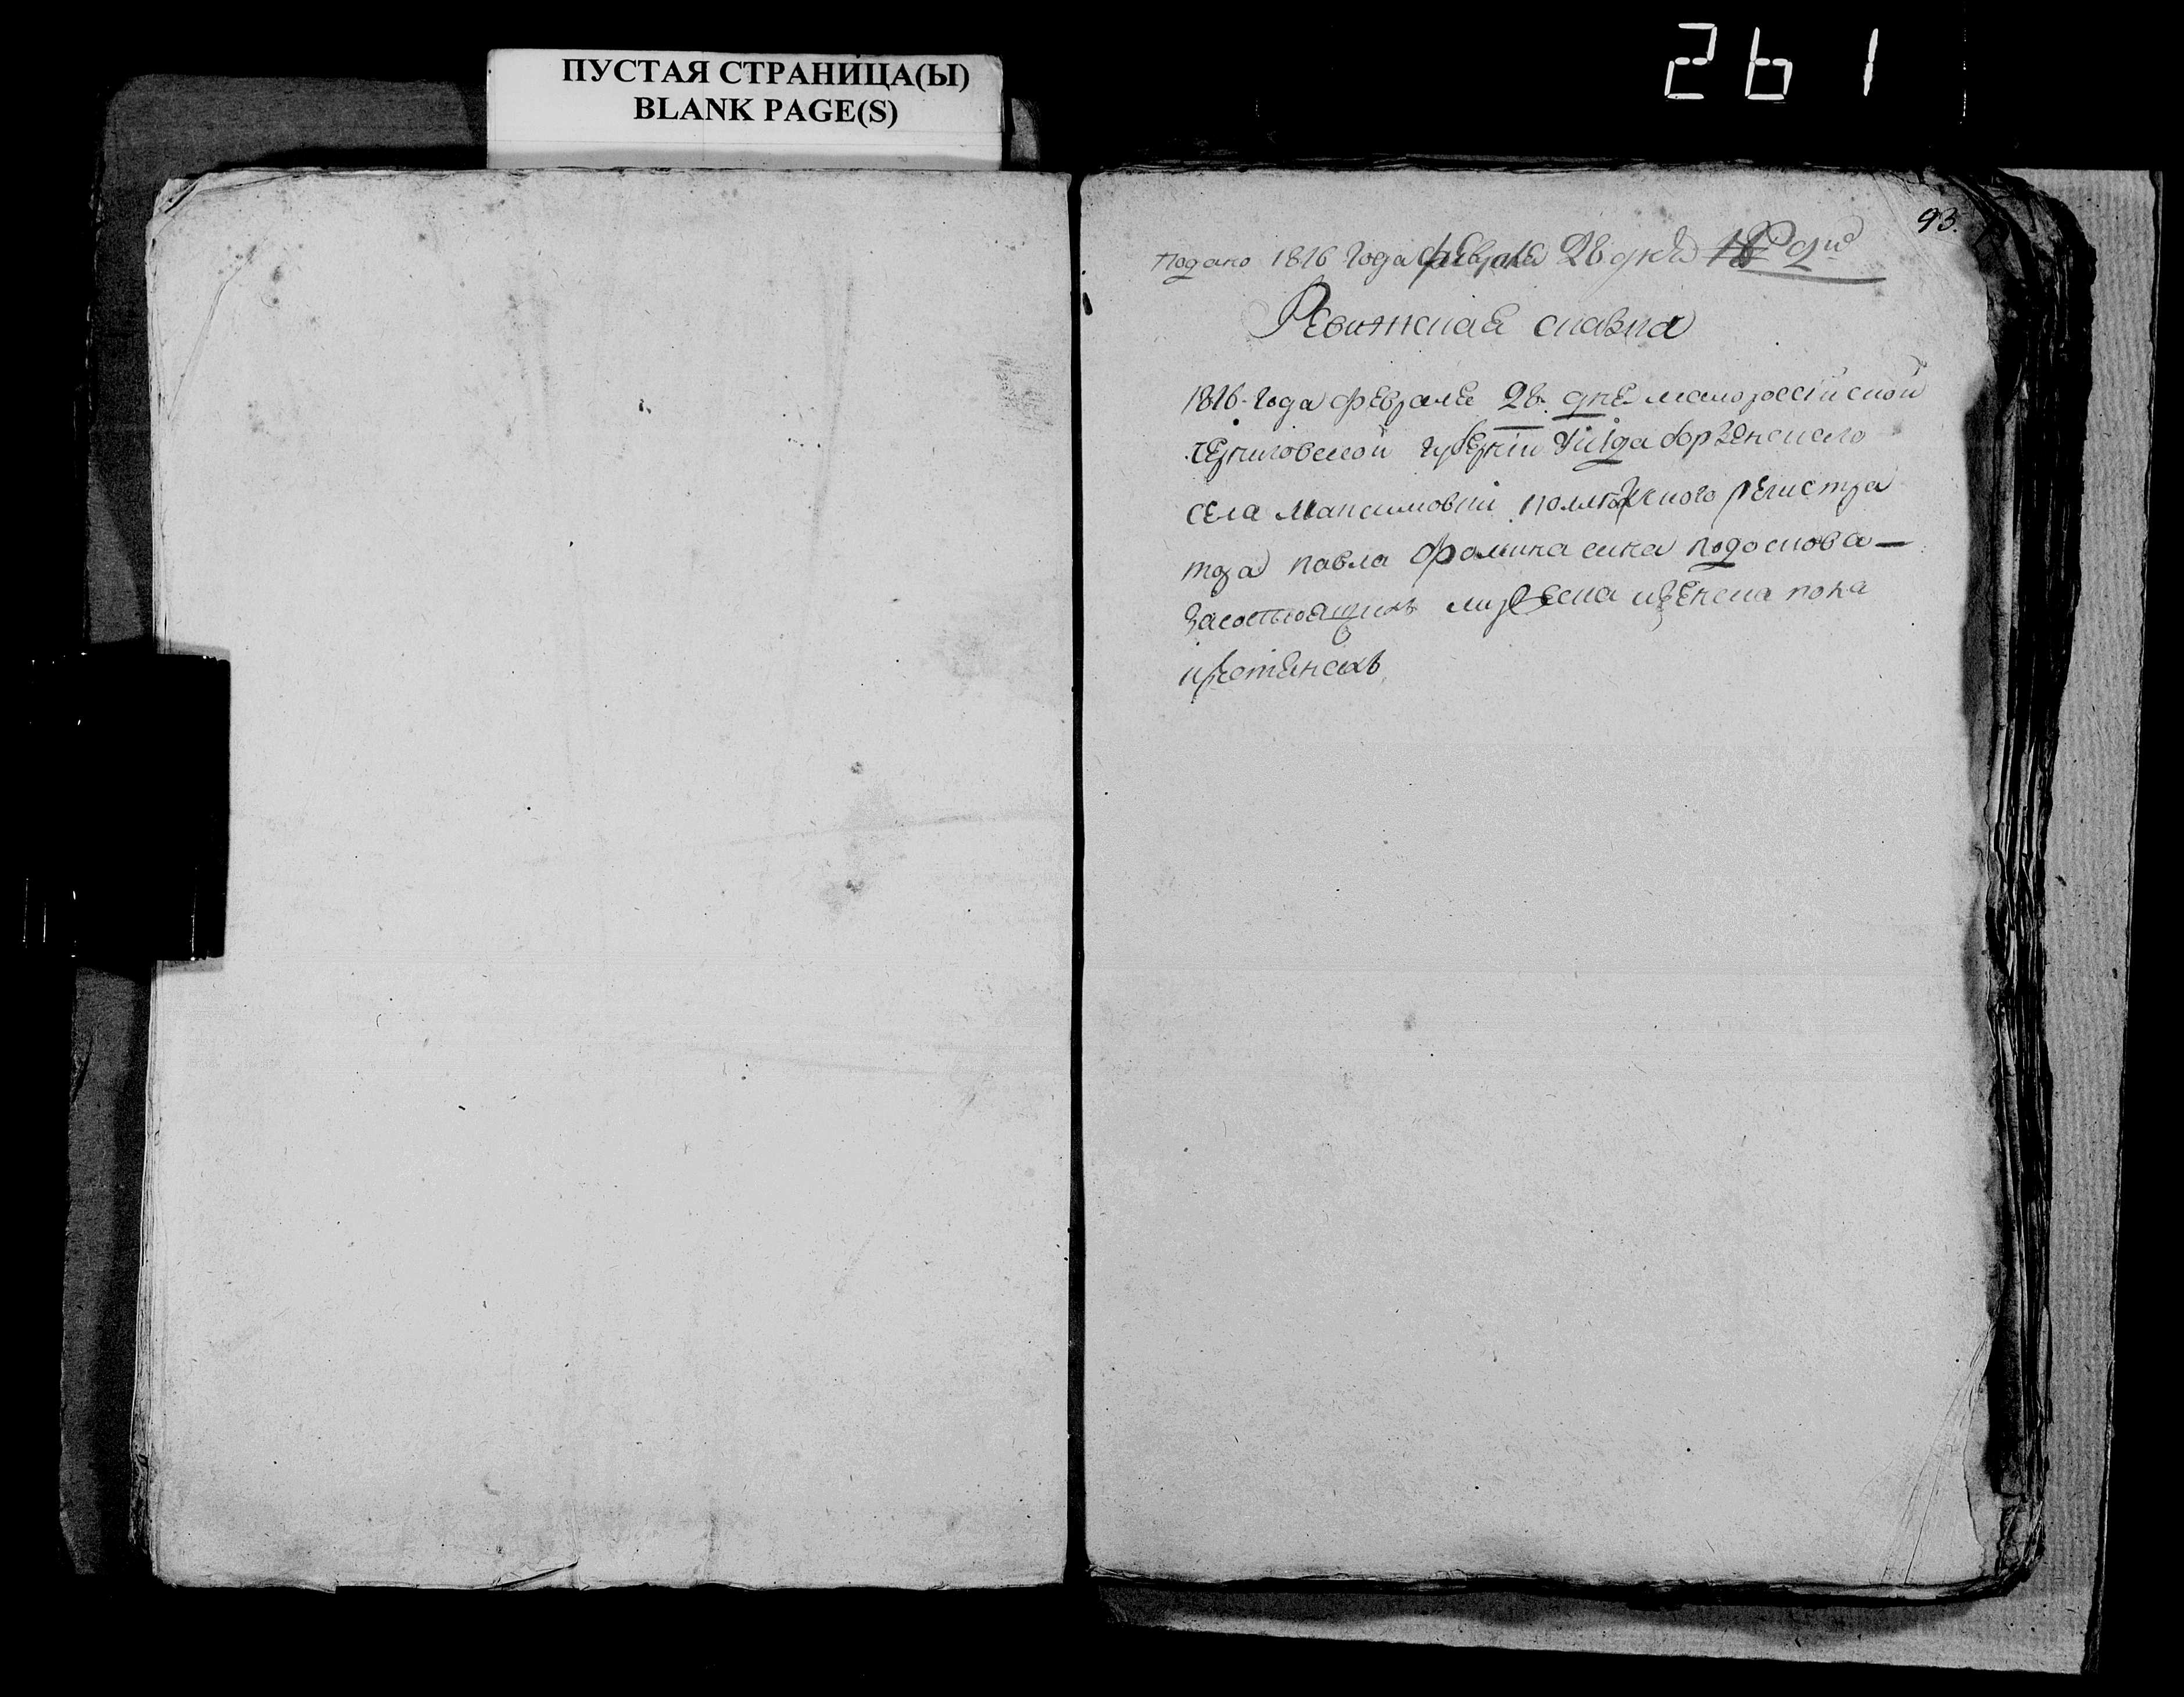 ПУСТАЯ СТРАНИЦА(Ы)
BLANK PAGE(S)
261
93.
подано 1816 года февраля 28 дня
Ревижская скаска
1816 года февраля 28. дня малоросейской
черниговской губернии борзенского
села Максимовки регистра
тора павла Фомина сина
засостоящих мужеска иженска пола
крестянехъ